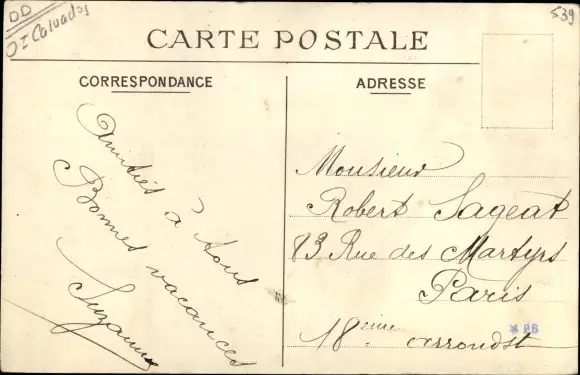 DD
OI Calvados
539
CARTE POSTALE
CORRESPONDANCE
ADRESSE
Amitiés à tous
Bonnes vacances
Suzanne
Monsieur
Robert Sageat
83 Rue des Martyrs
Paris
18eme arrondst
* BB